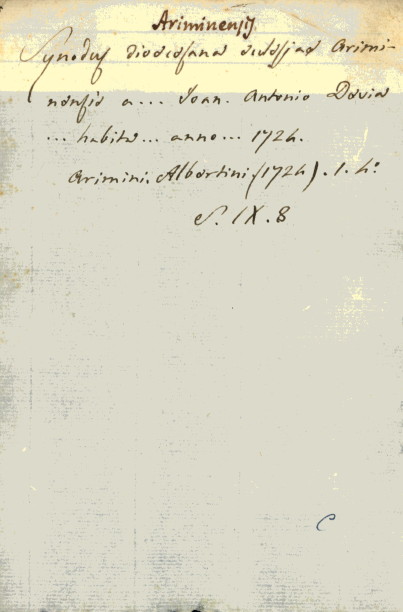 Ariminensis.
Synodus dioecesana eclesiae Arimi-
nensis a... Joan. Antonio Davia
... habita... anno... 1724.
Arimini. Albertini (1724). 1. 4º
S. IX. 8
C